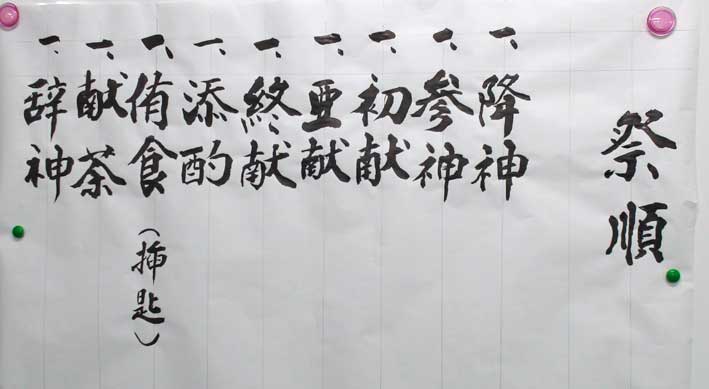 祭順
一、降神
一、参神
一、初献
一、亜献
一、終献
一、添酌
一、侑食（挿匙）
一、献茶
一、辞神